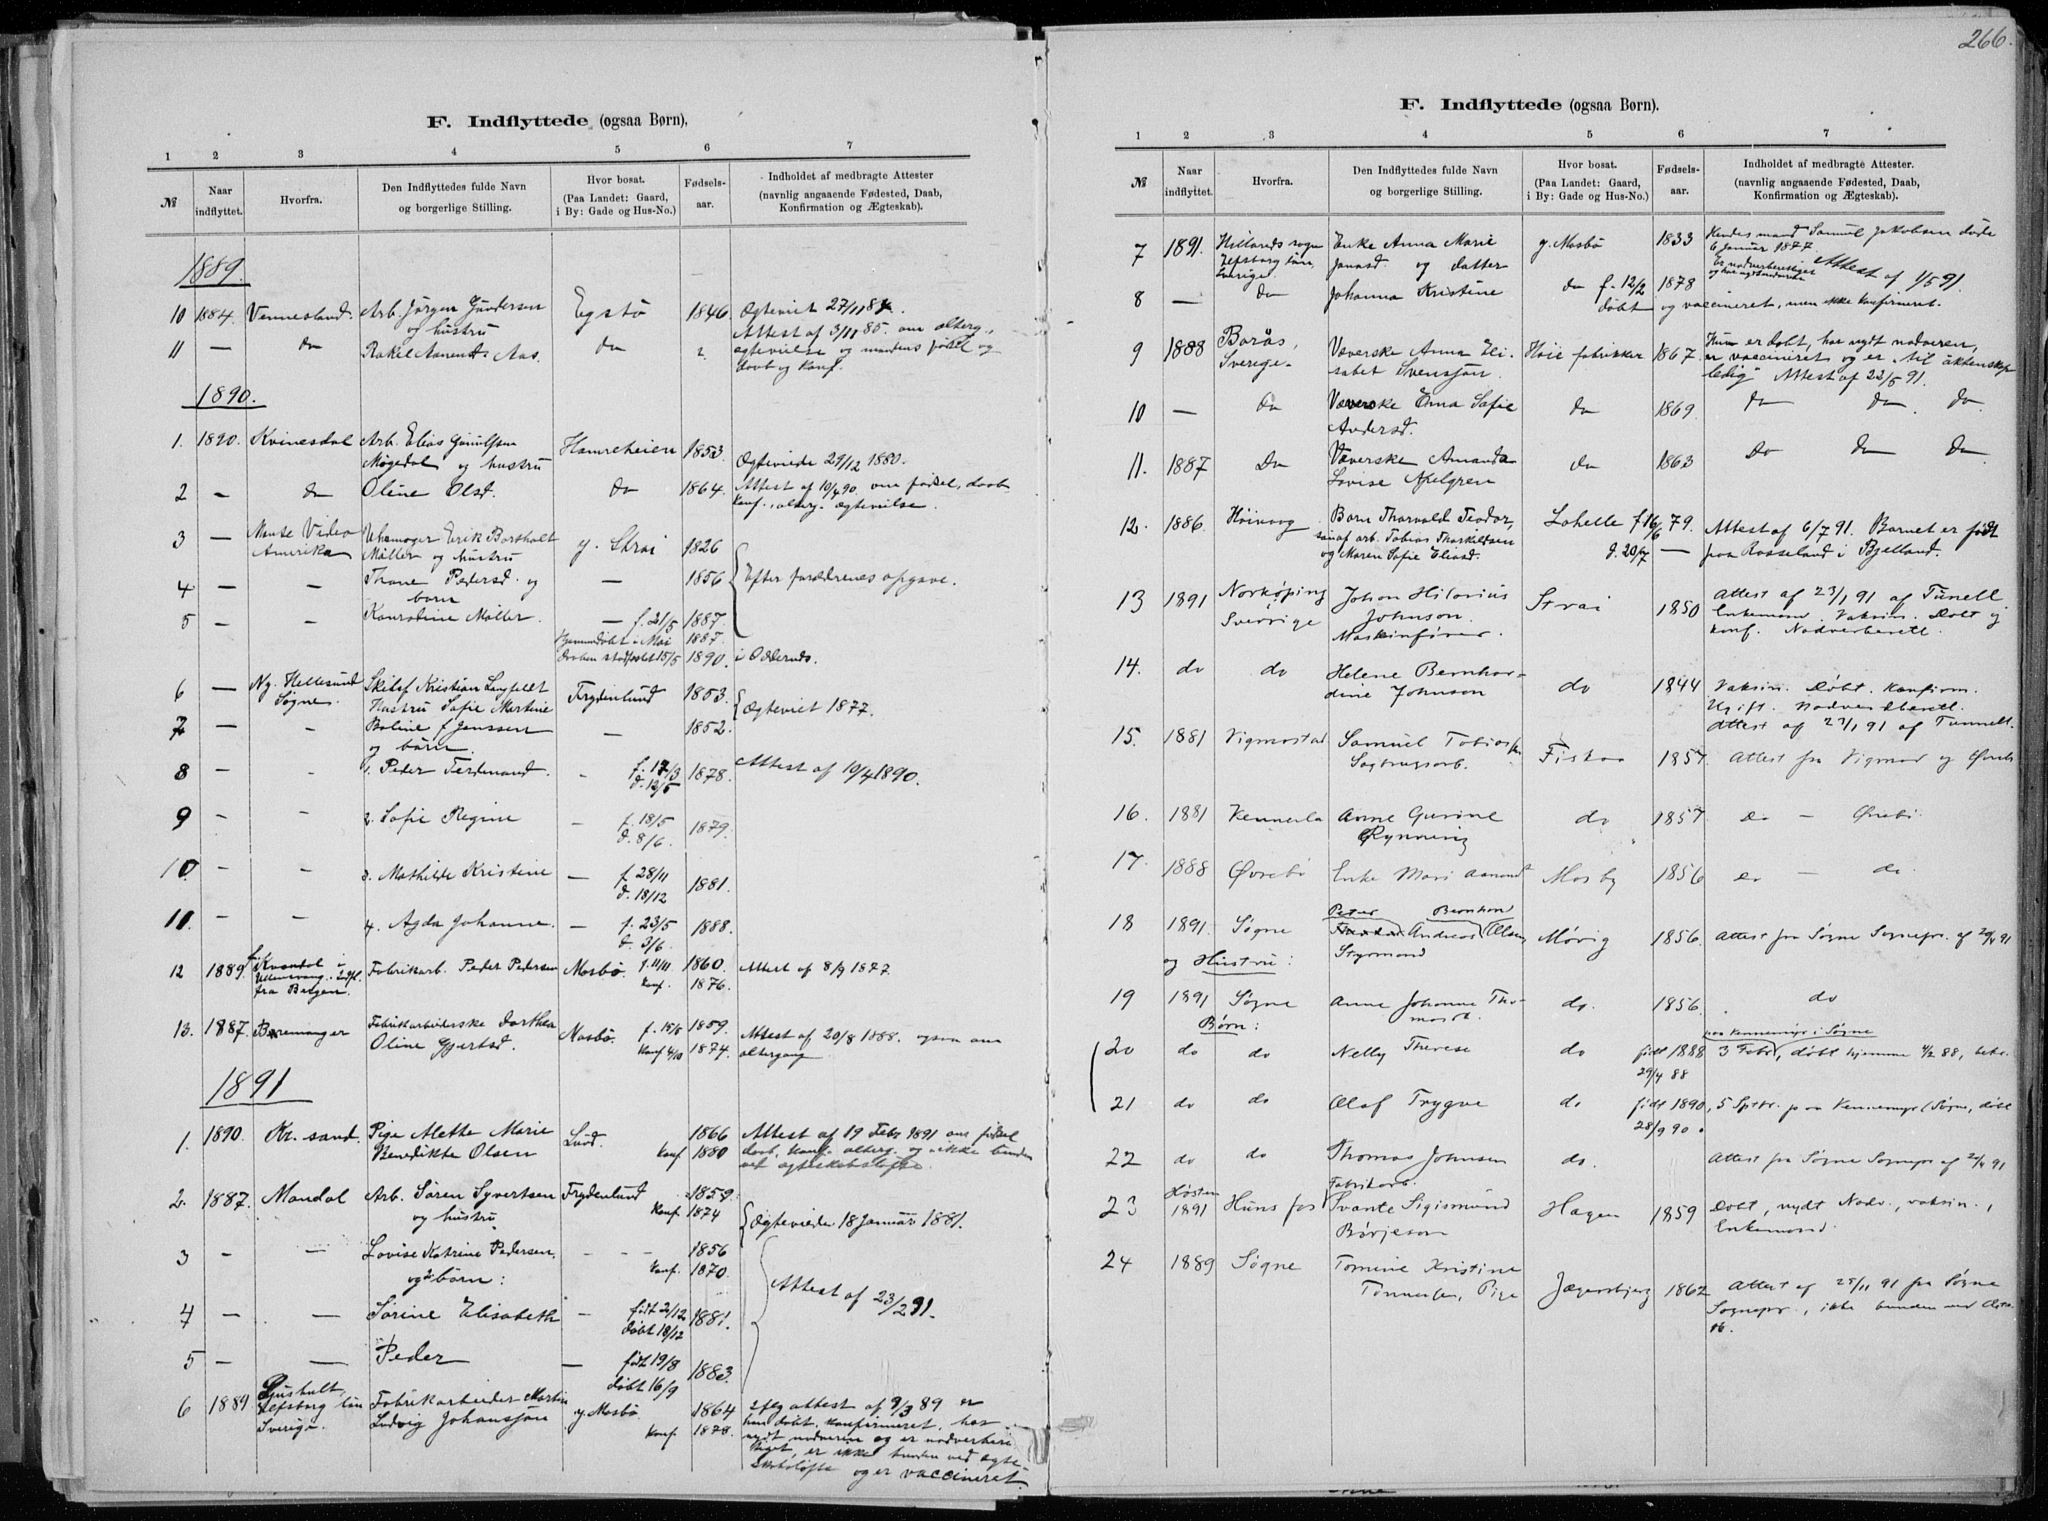 F. Indflyttede (ogsaa Børn),
1 2 3 4 5 6 7
№ Naar indflyttet. Hvorfra. Den Indflyttedes fulde Navn og borgerlige Stilling. Hvor bosat. (Paa Landet: Gaard, i By: Gade og Hus-No.) Fødsels-aar. Indholdet af medbragte Attester (navnlig angaaende Fødested, Daab, Konfirmation og Ægteskab).
1889.
10 1884. Vennesland. Arb. Jørgen Gundersen Egstø 1846. Ægteviet 27/11 84.
og hustru Attest af 3/11 85. om alterg.,
11 — do Rakel Aanensd. Aas. do ægtevielse og mandens fødsel og
daab og konf.
1890.
1. 1890. Kvinesdal Arb. Elias Gunulfsen Hamreheien 1853. Ægteviede 29/12 1880.
Møgedal og hustru
2 — do Oline Olsd. do 1864. Attest af 10/4 90. om fødsel, daab
konf., alterg. ægtevielse.
3 — Monte Video Uhrmager Erik Bertholt g. Strai 1826
Amerika Møller og hustru
4 — — Thone Pedersd. og — 1856 Efter forældrenes opgave.
barn
5 — — Konradine Møller. — f. 21/5 1887.
Hjemmedøbt i Mai 1887.
daaben stadfæstet 15/5 1890. i Oddernes.
6 — Ny Hellesund Skibsf Kristian Langfeldt Frydenlund 1853.
Søgne. Hustru Sofie Martine Ægteviet 1877.
7 — — Boline f. Janssen — 1852.
og børn.
8 — — 1. Peder Ferdinand. — f. 17/3 1878. Attest af 10/4 1890.
d. 12/5
9 — — 2. Sofie Regine — f. 18/5 1879.
d. 8/6.
10. — — 3. Mathilde Kristine — f. 28/11 1881.
d. 18/12
11. — — 4. Agda Johanne. — f. 23/5 1888.
d. 3/6.
12 1889. f. Kvandal i Fabrikarb. Peder Pedersen Mosbø. f. 11/11 1860. Attest af 8/9 1877.
Ullensvang. indfl. konf. 1876.
fra Bergen.
13. 1887. Bremanger Fabrikarbeiderske Dorthea Mosbø. f. 15/8 1859. Attest af 20/8 1888. ogsaa om
Oline Gjertsd. konf 4/10 1874. altergang
1891
1. 1890. Kr.sand. Pige Alette Marie Lund. 1866 Attest af 19 Febr 1891 om fødsel
Benedikte Olsen konf 1880 daab, konf. alterg. og ikke bunden
ved ægteskabsløfte.
2. 1887. Mandal Arb. Søren Syvertsen Frydenlund 1859.
og hustru konf. 1874 Ægteviede 18 Januar 1881.
3 — — Lovise Katrine Pedersen, — — 1856
og 2 børn: konf. 1870. Attest af 23/2 91.
4 — — Sørine Elisabeth — født 2/12 1881.
døbt 18/12
5 — — Peder — født 19/8 1883.
døbt 16/9
6 1889 Ljushult, Fabrikarbeider Martin g. Mosbø 1864 Ifølg attest af 9/3 89 er
Elfsborg län Ludvig Johansson konf. 1878. han døbt, konfirmeret, har
Sverige. nydt nadveren og er nadverberet-
tiget, er ikke bunden ved ægte-
skabsløfte og er vaccineret.
266.
F. Indflyttede (ogsaa Børn).
1 2 3 4 5 6 7
№ Naar indflyttet. Hvorfra. Den Indflyttedes fulde Navn og borgerlige Stilling. Hvor bosat. (Paa Landet: Gaard, i By: Gade og Hus-No.) Fødsels-aar. Indholdet af medbragte Attester. (navnlig angaaende Fødested, Daab, Konfirmation og Ægteskab).
7 1891. Hillareds sogn Enke Anna Marie g. Mosbø 1833 Hendes mand Samuel Jakobsen døde
Elfsborg län Jonasd. og datter 6 Januar 1877.
Sverige. Er nadverberettiget Attest af 1/5 91.
8 — do Johanna Kristine do f. 12/2 1878
døbt og vaccineret, men ikke konfirmeret.
9 1888 Borås, Væverske Anna Eli- Høie fabrikker 1867. Hun er døbt, har nydt nadveren,
Sverige. sabet Svensson. er vaccineret og er „til äktenskap
ledig" Attest af 22/5 91.
10 — do Væverske Erna Sofie do 1869. do do. do.
Andersd.
11. 1887 Do Væverske Amanda do 1863 Do do Do
Lovise Akelgren
12. 1886. Høivaag Barn Thorvald Teodor, Lohelle f 16/6 79. Attest af 6/7 91. Barnet er født
søn af arb. Tobias Thorkildsen d. 20/7 — paa Rosseland i Bjelland.
og Maren Sofie Eliasd.
13 1891 Norköping Johan Hilarius Strai 1850 Attest af 23/1 91 af Tunell
Sverrige Johnson. Enkemand. Vaksin. Døbt og
Maskinfører. konf. Nadverberett.
14. do do Helene Bernhar- do 1844 Vaksin. Døbt. Konfirm.
dine Johnson Ugift. Nadverberett.
Attest af 23/1 91 af Tunnell.
15. 1881 Vigmostad Samuel Tobias Fiskaa 1857 Attest fra Vigmos og Øvreb.
Sagbrugsarb.
16. 1881 Vennesla Anne Gurine do 1857 do — Øvrebø.
Rynning
17. 1888 Øvrebø Enke Mari Aanensd Mosby 1856 do — do.
18 1891. Søgne Peter Andreas Bernhard Olsen Møvig 1856. Attest fra Søgne Sognepr. af 29/4 91
og Hustru: Styrmand
19 1891 Søgne Anne Johanne Tho- do. 1856. do
Børn: masd.
20 do do Nelly Therese do født 1888 3 Febr, paa Kennemyr i Søgne døbt hjemme 4/2 88, bekr.
29/4 88
21 do do Olaf Trygve do født 1890, 5 Sptbr. paa Kennemyr i Søgne, døbt
28/9 90.
22 do do Thomas Johnsen do. Attest fra Søgne Sognepr af 29/4 91
Fabrikarb.
23 Høsten 1891 Hunsfos Svante Sigismund Hagen 1859 Døbt, nydt Nadv., vaksin.,
Børjeson Enkemand.
24 1889 Søgne Tomine Kristine Jægersbjerg 1862 Attest af 25/11 91 fra Søgne
Tønnesen, Pige Sognepr., ikke bunden ved Ægte-
sk.